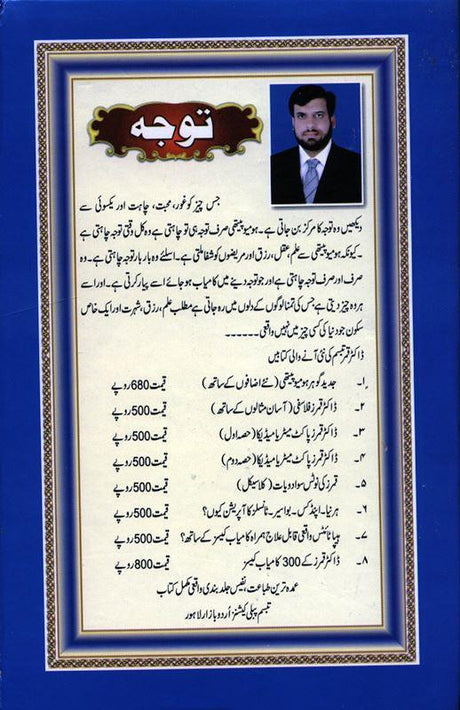 توجہ
جس چیز کو غور، محبت، چاہت اور یکسوئی سے
دیکھیں وہ توجہ کا مرکز بن جاتی ہے۔ ہومیوپیتھی صرف توجہ ہی تو چاہتی ہے وہ کل وقتی توجہ چاہتی ہے
۔ کیونکہ ہومیوپیتھی سے علم، عقل، رزق اور مریضوں کو شفا ملتی ہے۔ اسلئے وہ بار بار توجہ چاہتی ہے۔ وہ
صرف اور صرف توجہ چاہتی ہے اور جو توجہ دینے میں کامیاب ہو جائے اسے پیار کرتی ہے۔ اور اسے
ہر وہ چیز دیتی ہے جس کی تمنا لوگوں کے دلوں میں رہ جاتی ہے مطلب علم، رزق، شہرت اور ایک خاص
سکون جو دنیا کی کسی چیز میں نہیں واقعی۔۔۔۔۔۔
ڈاکٹر قمر تبسم کی نئی آنے والی کتابیں
۱۔ جدید گوہر ہومیوپیتھی (نئے اضافوں کے ساتھ) قیمت 680 روپے
۲۔ ڈاکٹر قمرز فلاسفی (آسان مثالوں کے ساتھ) قیمت 500 روپے
۳۔ ڈاکٹر قمرز پاکٹ میٹریا میڈیکا (حصہ اول) قیمت 500 روپے
۴۔ ڈاکٹر قمرز پاکٹ میٹریا میڈیکا (حصہ دوم) قیمت 500 روپے
۵۔ قمرز کی نوٹس سو ادویات (کلاسیکل) قیمت 500 روپے
۶۔ ہرنیا۔ اپنڈکس۔ بواسیر۔ ٹانسلز کا آپریشن کیوں؟ قیمت 500 روپے
۷۔ ہیپاٹائٹس واقعی قابل علاج ہمراہ کامیاب کیسز کے ساتھ؟ قیمت 500 روپے
۸۔ ڈاکٹر قمرز کے 300 کامیاب کیسز قیمت 800 روپے
عمدہ ترین طباعت، نفیس جلد بندی واقعی مکمل کتاب
تبسم پبلی کیشنز اُردو بازار لاہور